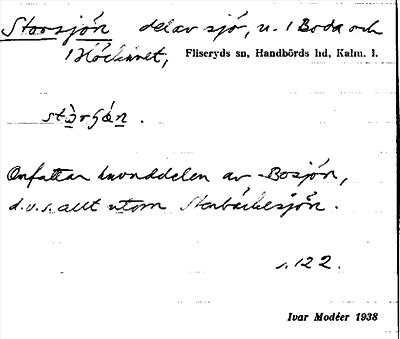 Storsjön del av sjö, u. 1 Boda och
1 Höckhult, Fliseryds sn, Handbörds hd, Kalm. l.
Omfattar huvuddelen av Bosjön,
d.v.s. allt utom Stenbäckesjön.
s. 122.
Ivar Modéer 1938